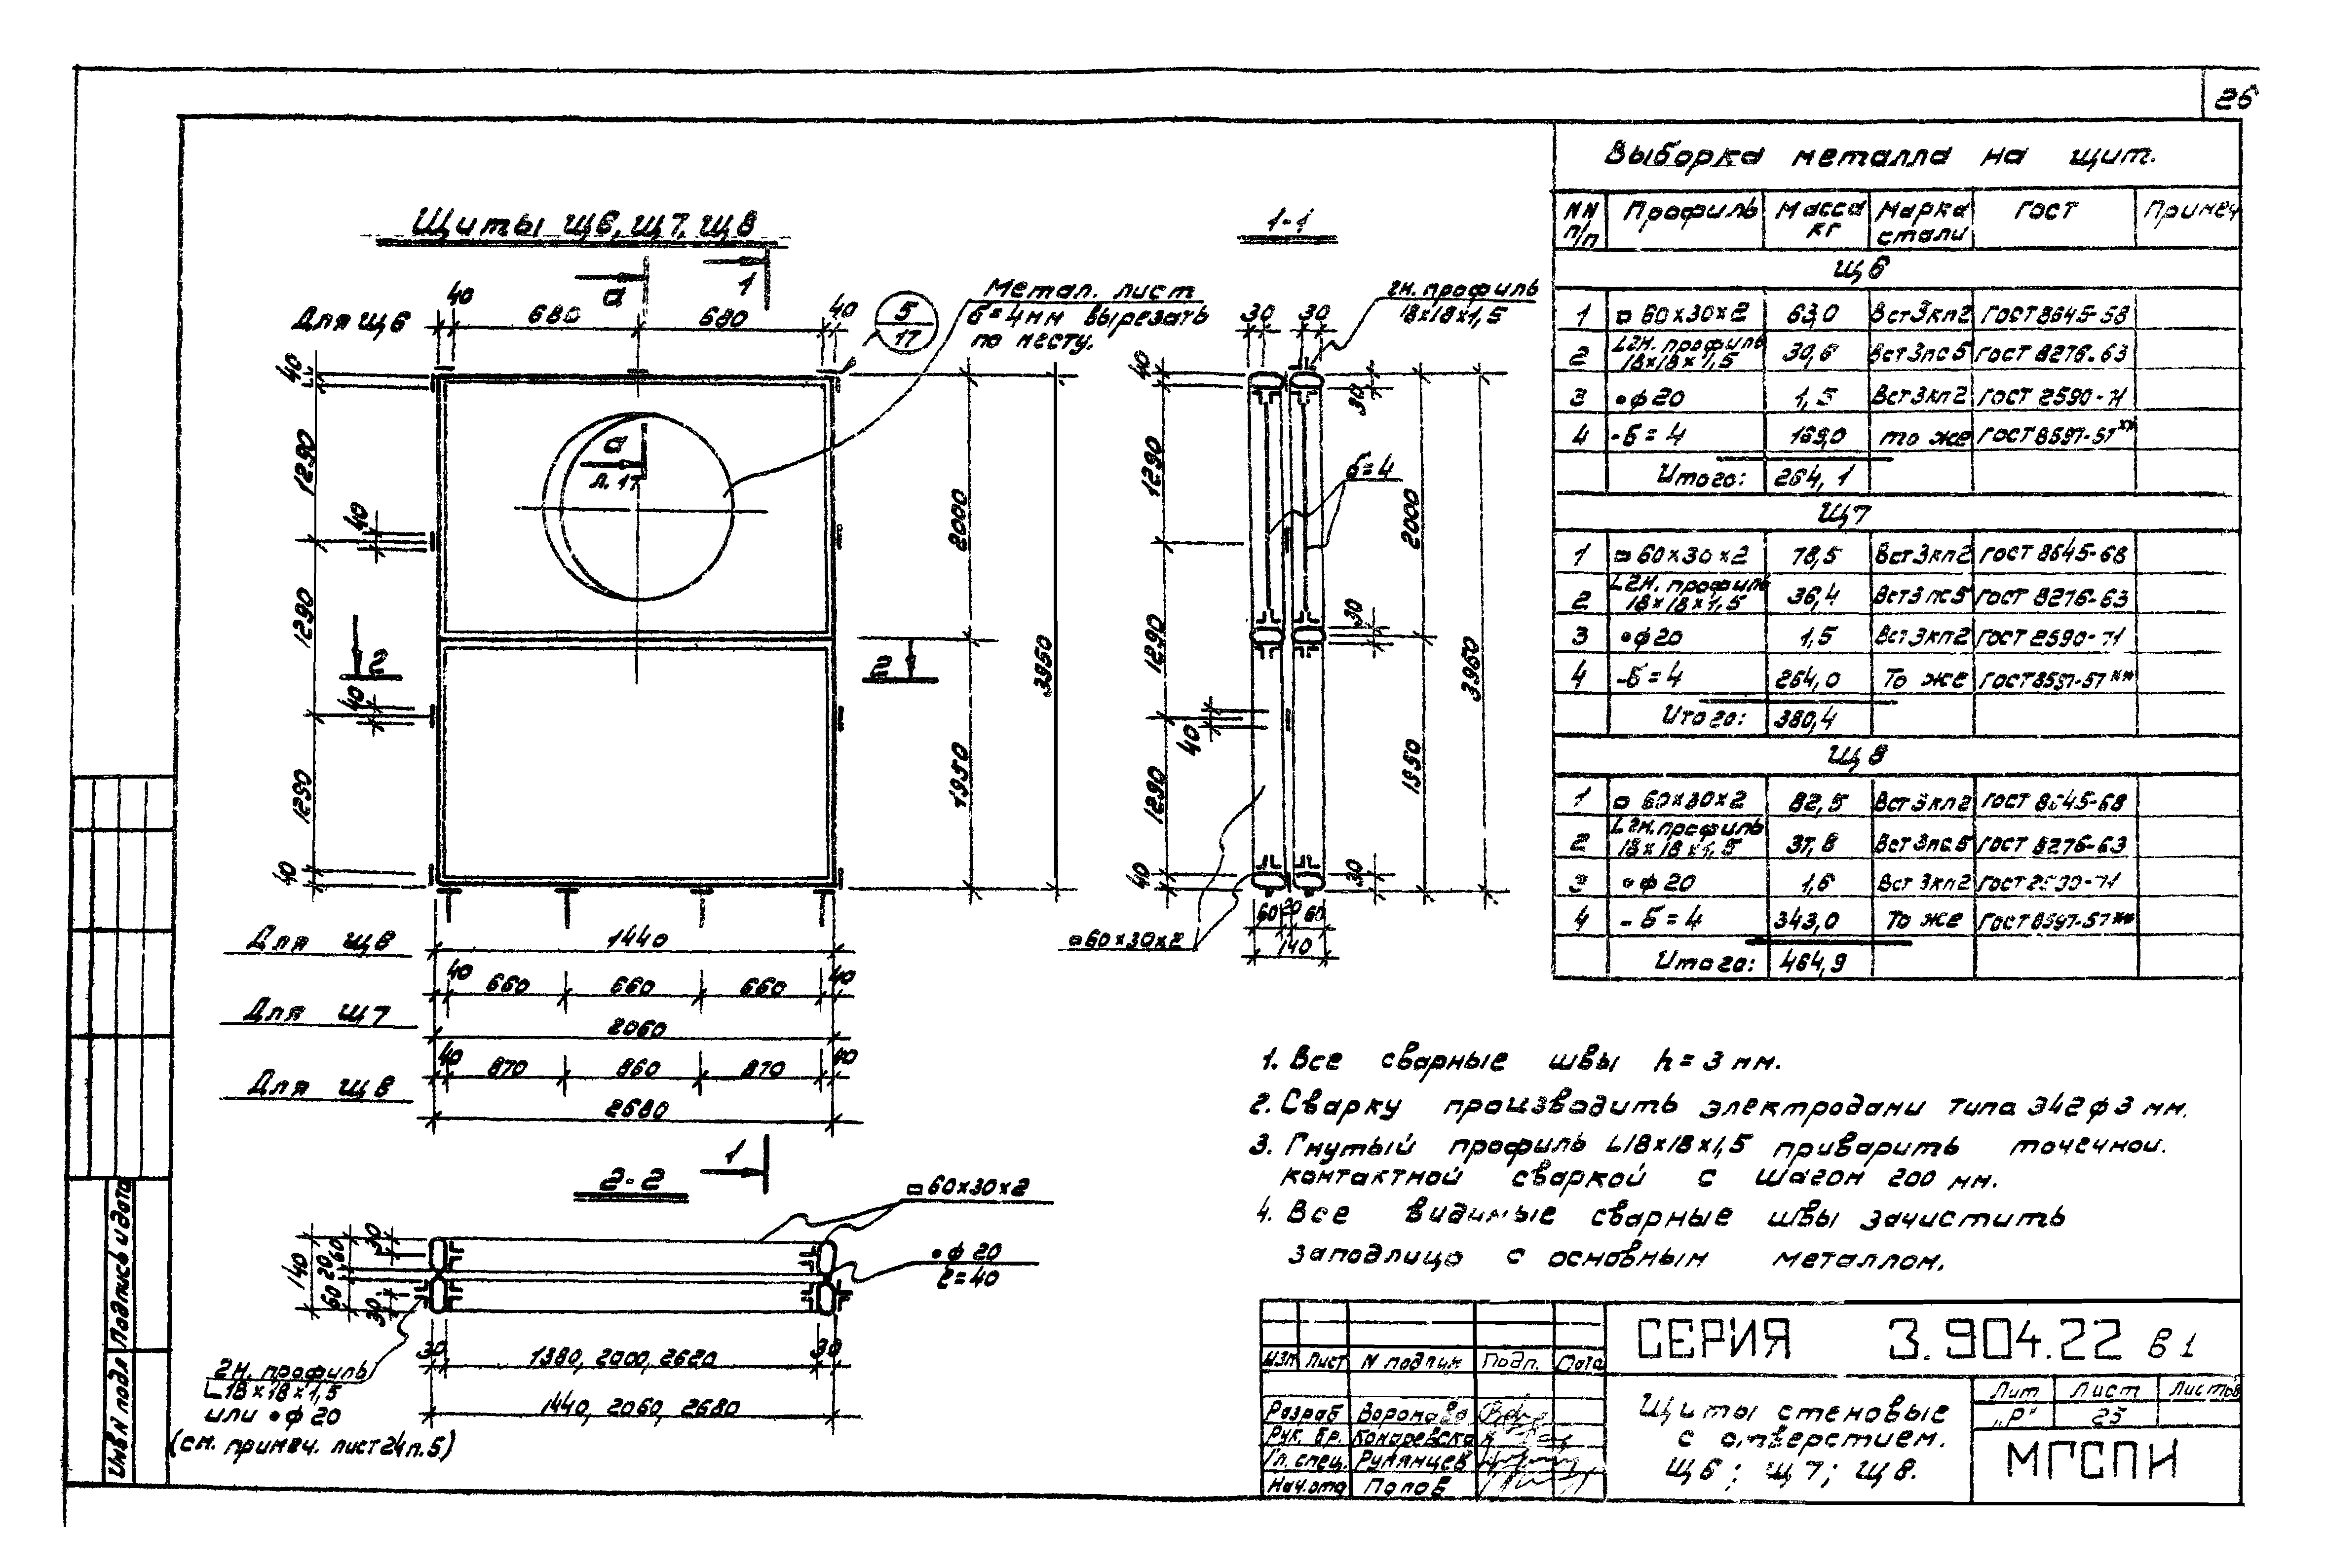 26
Щиты Щ6, Щ7, Щ8
1-1
а
1
Для Щ6
40
680
680
40
5
17
Метал. лист
б=4мм вырезать
по месту.
а
л. 17
40
1290
40
1290
40
1290
40
2000
1950
3950
2
2
гн. профиль
18х18х1,5
30 30
30
б=4
40
1290
1290
40
1290
40
2000
1950
3960
30
30
60 20 60
140
▫60×30×2
Для Щ6
1440
40 660 660 660 40
Для Щ7
2060
40 870 860 870 40
Для Щ8
2680
1
2-2
▫60×30×2
•ф 20
ℓ=40
140
60 20 60
30
30
30 1380, 2000, 2620 30
1440, 2060, 2680
гн. профиль
∟18×18×1,5
или •ф 20
(см. примеч. лист 24 п.5)
Выборка металла на щит.
NN п/п Профиль Масса кг Марка стали ГОСТ Примеч
Щ6
1 ▫ 60×30×2 63,0 Вст3кп2 ГОСТ 8645-68
2 ∟гн. профиль 18×18×1,5 30,6 Вст3пс5 ГОСТ 8276-63
3 •ф 20 1,5 Вст3кп2 ГОСТ 2590-71
4 -б=4 169,0 то же ГОСТ 8597-57**
Итого: 264,1
Щ7
1 ▫ 60×30×2 78,5 Вст3кп2 ГОСТ 8645-68
2 ∟гн. профиль 18×18×1,5 36,4 Вст3пс5 ГОСТ 8276-63
3 •ф 20 1,5 Вст3кп2 ГОСТ 2590-71
4 -б=4 264,0 То же ГОСТ 8597-57**
Итого: 380,4
Щ8
1 ▫ 60×30×2 82,5 Вст3кп2 ГОСТ 8645-68
2 ∟гн. профиль 18×18×1,5 37,8 Вст3пс5 ГОСТ 8276-63
3 •ф 20 1,6 Вст3кп2 ГОСТ 2590-71
4 -б=4 343,0 То же ГОСТ 8597-57**
Итого: 464,9
1. Все сварные швы h=3 мм.
2. Сварку производить электродами типа Э42 ф 3 мм.
3. Гнутый профиль ∟18×18×1,5 приварить точечной.
контактной сваркой с шагом 200 мм.
4. Все видимые сварные швы зачистить
заподлицо с основным металлом.
Изм Лист N подлин Подп. Дата
Разраб Воронова
Рук. бр. Комаревская
Гл. спец. Румянцев
Нач. отд Попов
СЕРИЯ 3.904.22 В1
Щиты стеновые
с отверстием.
Щ6; Щ7; Щ8.
Лит Лист Листов
„Р" 25
МГСПИ
Инв.N подл Подпись и дата